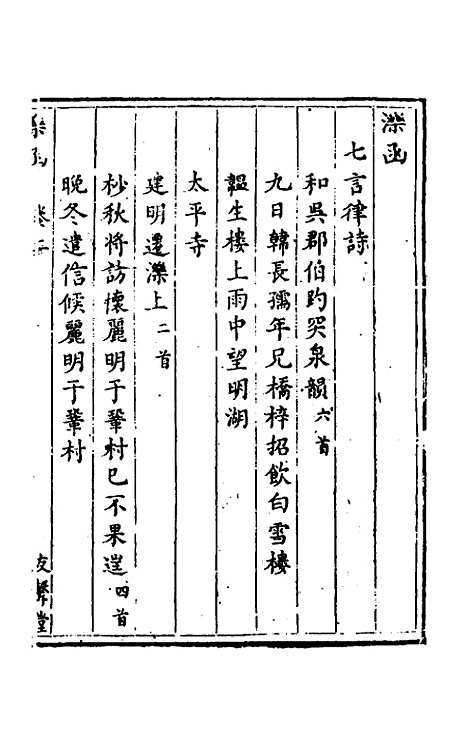 濼函
七言律詩
和吳郡伯趵突泉韻六首
九日韓長孺年兄橋梓招飲白雪樓
韞生樓上雨中望明湖
太平寺
建明遷濼上二首
杪秋將訪懷麗明于輦村已不果遑四首
晚冬遣信候麗明于輦村
濼函
友聲堂